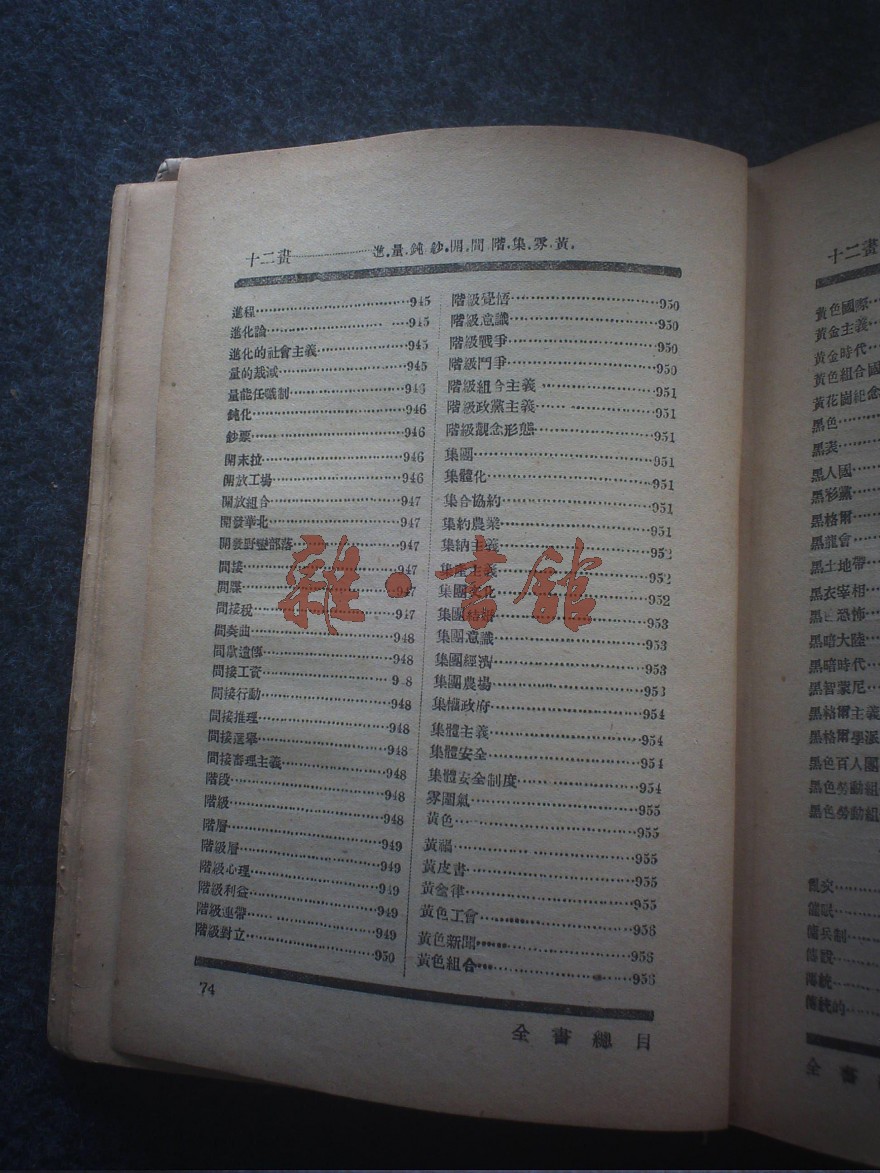 十二畫……進.量.鈍.鈔.開.間.階.集.雰.黃.
進程……945
進化論……945
進化的社會主義……945
量的裁減……945
量能任職制……946
鈍化……946
鈔票……946
開末拉……946
開放工場……946
開放組合……947
開發華北……947
開發野蠻部落……947
間接……947
間諜……947
間接稅……947
間奏曲……948
間歇遺傳……948
間接工資……9 8
間接行動……948
間接推理……948
間接選舉……948
間接審理主義……948
階段……948
階級……948
階層……949
階級層……949
階級心理……949
階級利益……949
階級連帶……949
階級對立……950
階級覺悟……950
階級意識……950
階級戰爭……950
階級鬥爭……950
階級組合主義……951
階級政黨主義……951
階級觀念形態……951
集團……951
集體化……951
集合協約……951
集約農業……951
集納主義……952
集產主義……952
集團文化……952
集團結婚……953
集團意識……953
集團經濟……953
集團農場……953
集權政府……954
集體主義……954
集體安全……954
集體安全制度……954
雰圍氣……955
黃色……955
黃禍……955
黃皮書……955
黃金律……955
黃色工會……956
黃色新聞……956
黃色組合……956
74
全書總目
雜·書館
十二畫
黃色國際……
黃金主義……
黃金時代……
黃色組合國
黃花崗紀念
黑色……
黑表……
黑人國……
黑衫黨……
黑格爾……
黑龍會……
黑土地帶……
黑衣宰相……
黑色恐怖……
黑暗大陸……
黑暗時代……
黑智蒙尼……
黑格爾主義
黑格爾學派
黑色百人團
黑色勞動組
黑色勞動組
催眠……
傭兵制……
傳統……
傳統的……
全書